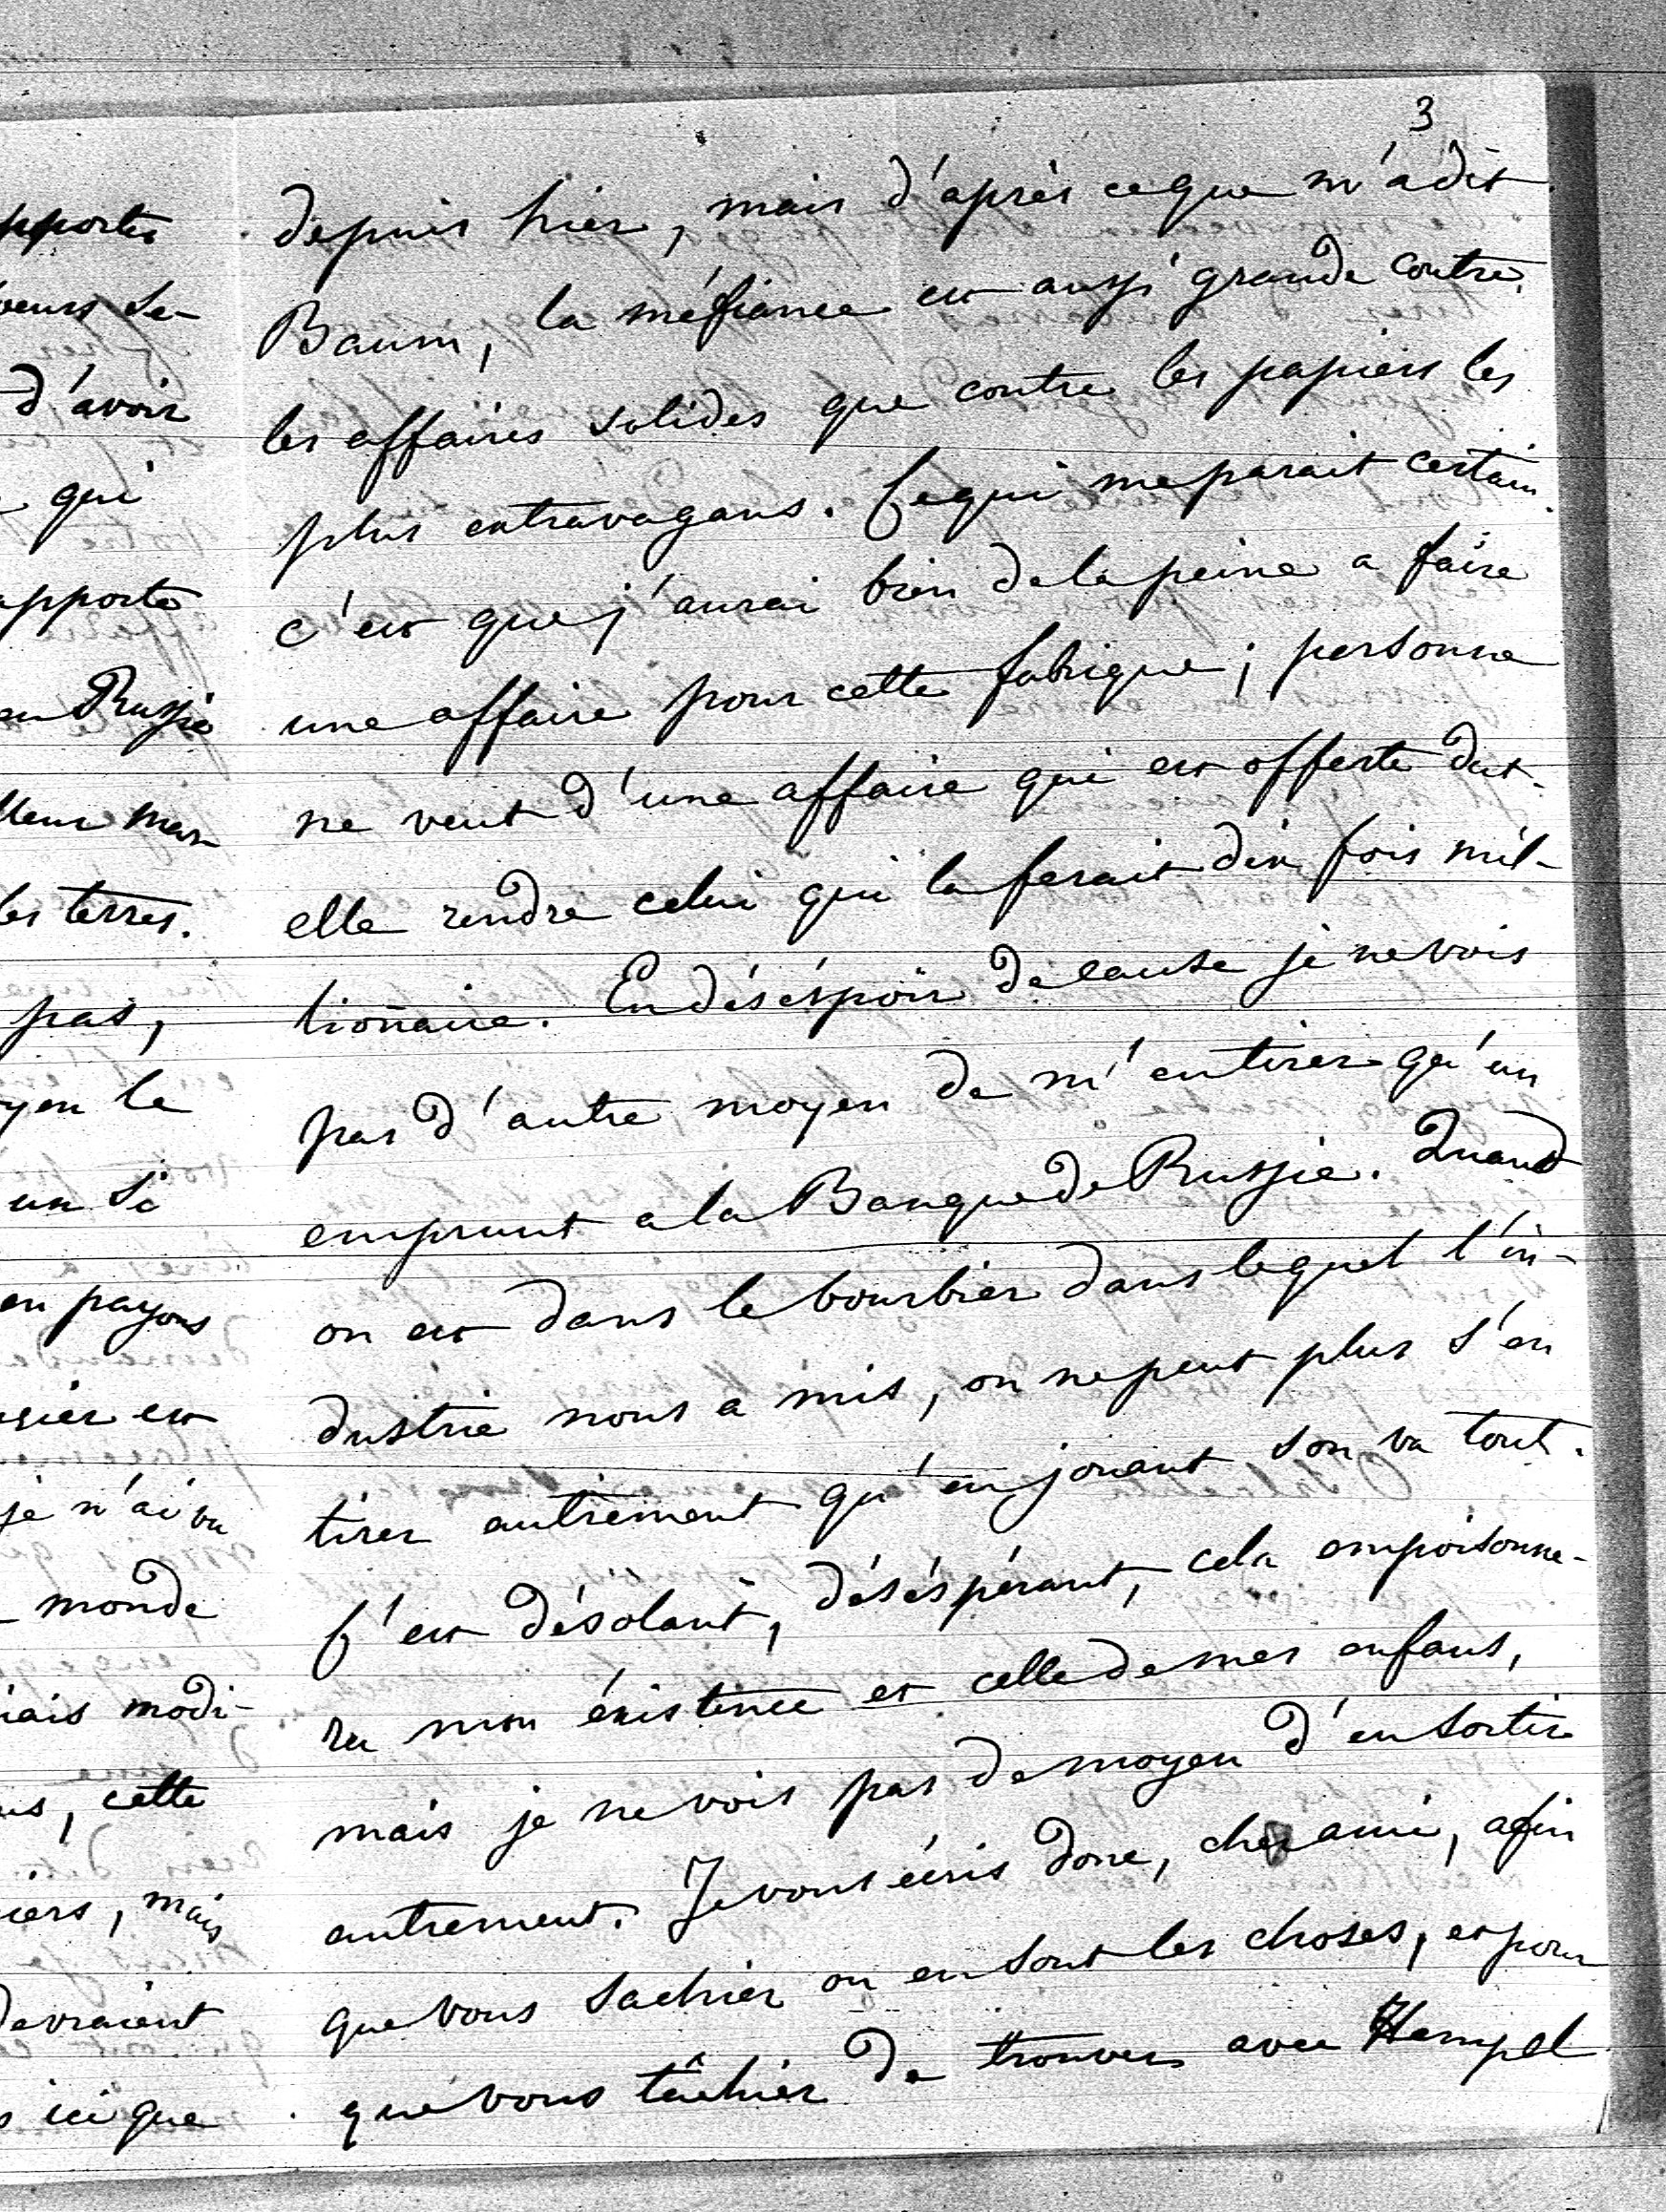 3
depuis hier, mais d'après ceque m'a dit
Baum, la méfiance est aussi grande contre
les affaires solides que contre les papiers les
plus extravagans. Cequi me parait certain
c'est que j'aurai bien dela peine a faire
une affaire pour cette fabrique; personne
ne veut d'une affaire qui est offerte dut-
elle rendre celui qui la ferait dix fois mil-
lionaire. En désésspoir de cause je ne vois
pas d'autre moyen de m'entirer qu'un
emprunt a la Banque de Russie. Quand
on est dans le bourbier dans lequel l'in-
dustrie nous a mis, on ne peut plus s'en
tirer autrement qu'en jouant son va tout.
C'est désolant, désésperant, cela empoisonne-
ra mon éxistence et celle de mes enfans,
mais je ne vois pas de moyen d'en sortir
autrement. Je vous écris donc, cher ami, afin
que vous sachiez ou en sont les choses, et pour
que vous tâchiez de trouver avec Hempel
pporte
veurs se-
d'avoir
qui
apporte
en Russie
lleur mar-
les terres.
pas,
yen le
un si
en payons
est
je n'ai vu
monde
modi-
cette
iers, mais
devraient
ici que